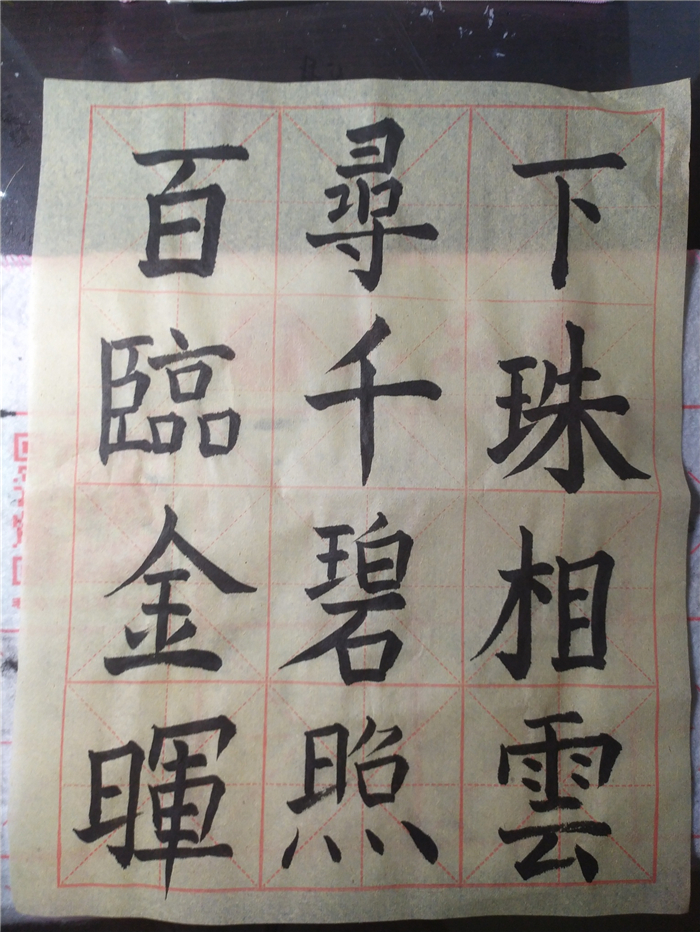 百尋下
臨千珠
金碧相
暉照雲